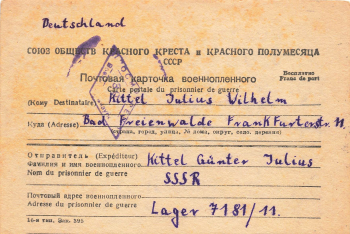 Deutschland
СОЮЗ ОБЩЕСТВ КРАСНОГО КРЕСТА и КРАСНОГО ПОЛУМЕСЯЦА
СССР
Почтовая карточка военнопленного
Carte postale du prisonnier de guerre
Бесплатно
Franc de port
(Кому) Destinataire Kittel Julius Wilhelm
Куда (Adresse) Bad Freienwalde Frankfurterstr. 11.
город, улица, № дома, округ, село, деревня
Отправитель (Expéditeur)
Фамилия и имя военнопленного
Nom du prisonnier de guerre
Kittel Günter Julius
SSSR
Почтовый адрес военнопленного
Adresse du prisonnier de guerre
Lager 7181/11.
16-я тип. Зак. 395